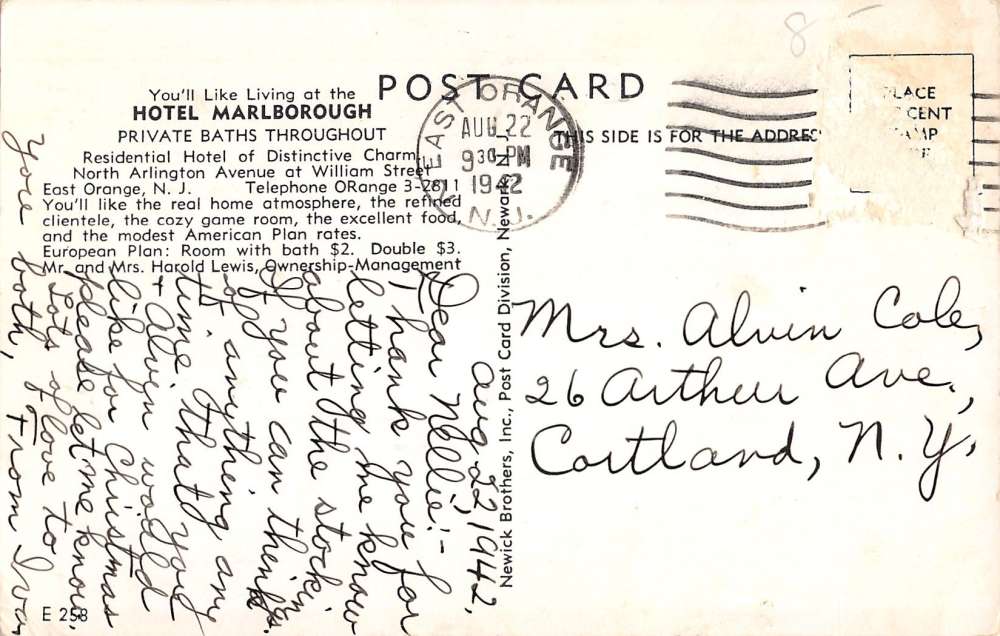 8
POST CARD
You'll Like Living at the
HOTEL MARLBOROUGH
PRIVATE BATHS THROUGHOUT
Residential Hotel of Distinctive Charm
North Arlington Avenue at William Street
East Orange, N. J. Telephone ORange 3-2811
You'll like the real home atmosphere, the refined
clientele, the cozy game room, the excellent food,
and the modest American Plan rates.
European Plan: Room with bath $2. Double $3.
Mr. and Mrs. Harold Lewis, Ownership-Management
EAST ORANGE
AUG 22
9 30 PM
1942
N.J.
THIS SIDE IS FOR THE ADDRE
LACE
CENT
AMP
Newick Brothers, Inc., Post Card Division, Newark, N.
Aug 22, 1942.
Dear Nellie:-
Thank you for
letting me know
about the stockings.
If you can think
of anything any
time that you
+ Alvin would
like for Christmas
please let me know.
Lots of love to
you both, From Iva
Mrs. Alvin Cole,
26 Arthur Ave.,
Cortland, N. Y.
E 258